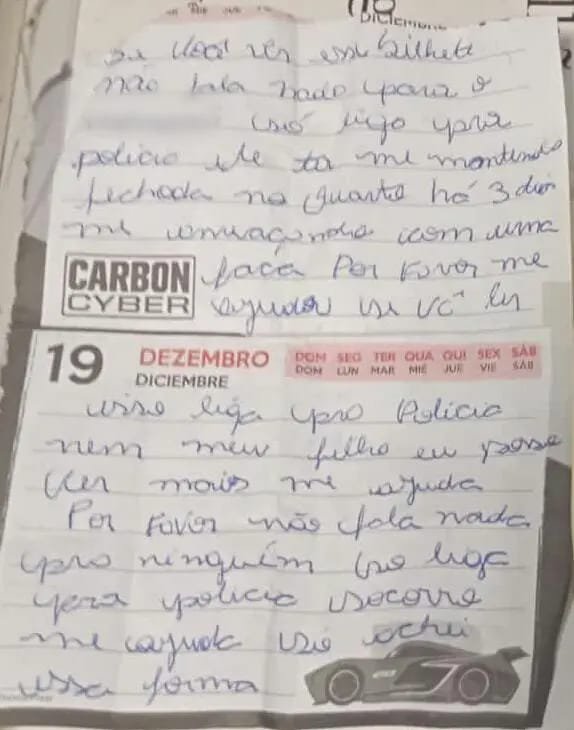 DICIEMBRE
se você ler esse bilhete
não fala nada para o
só liga pra
policia ele ta me mantendo
fechada no quarto há 3 dias
me ameaçando com uma
CARBON CYBER faca Por Favor me
ajudar se vc ler
19 DEZEMBRO DICIEMBRE DOM SEG TER QUA QUI SEX SÁB
DOM LUN MAR MIÉ JUE VIE SÁB
isso liga pra Policia
nem meu filho eu posso
Ver mais me ajuda
Por Favor não fala nada
pra ninguém so liga
para policia socorro
me ajuda só achei
essa forma